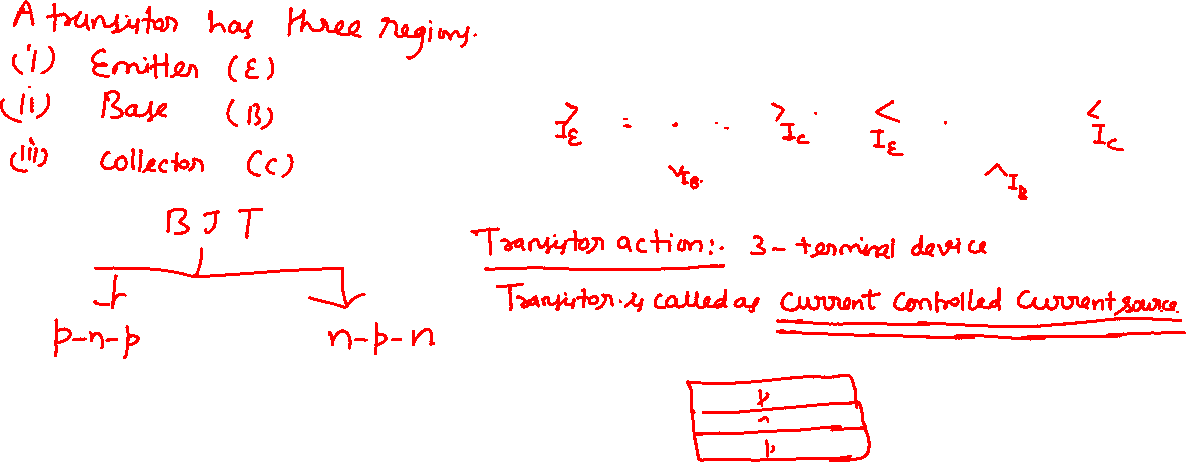 A transistor has three regions.
(i) Emitter (E)
(ii) Base (B)
(iii) Collector (C)
BJT
p-n-p n-p-n
> = . .. > . < . <
I_E I_C I_E I_C
∨I_B. ∧I_B
Transistor action:. 3-terminal device
Transistor is called as current controlled current source
p
n
p